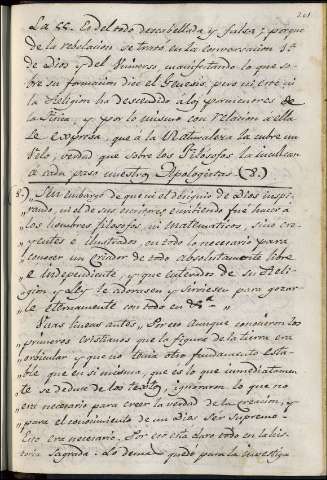 201
La 88. Es del todo descabellada y falsa; porque
de la rebelacion se trató en la conversacion
de Dios y del Universo manifestando lo que so-
bre su formacion dice el Genesis, pero ni cree ni
la Religion ha descendido a los pormenores de
la Fisica, y por lo mismo con relacion a ella
se expresa, que á la Naturaleza la cubre un
Velo, verdad que sobre los Filosofos la inculcan
á cada paso nuestros Apologistas (8.)
8.) Sin embargo de que ni el designio de Dios inspi-
„rando, ni el de sus escritores escriviendo fue hacer á
„los hombres filosofos, ni matematicos, sino cre-
„yentes e ilustrados, en todo lo necesario para
„conocer un Criador de todo absolutamente libre
„e independiente, y que enterados de su Reli-
„gion y Ley le adorasen y sirviesen para gozar-
„le eternamente con todo en
Unas lineas antes, Pero aunque conocieron los
„primeros cristianos que la figura de la tierra era
„orbicular y que no tenia otro fundamento esta-
„ble que en si misma, que es lo que inmediatamen-
„te se deduce de los textos, ignoraron lo que no
„era necesario para creer la verdad de la creacion, y
„para el conocimiento de un Dios Ser Supremo –
„Eso era necesario. Por eso está claro todo en la his-
„toria Sagrada. Lo demas quedó para la investiga